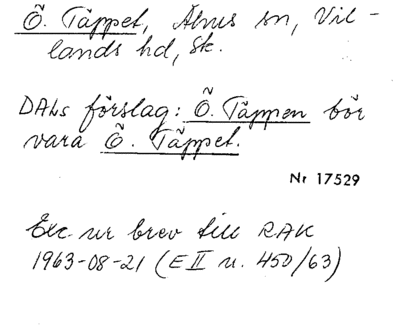 Ö. Täppet, Åhus sn, Vil-
lands hd, Sk.
DALs förslag: Ö. Täppen bör
vara Ö. Täppet.
Nr 17529
Exc. ur brev till RAK
1963-08-21 (E II u. 450/63)